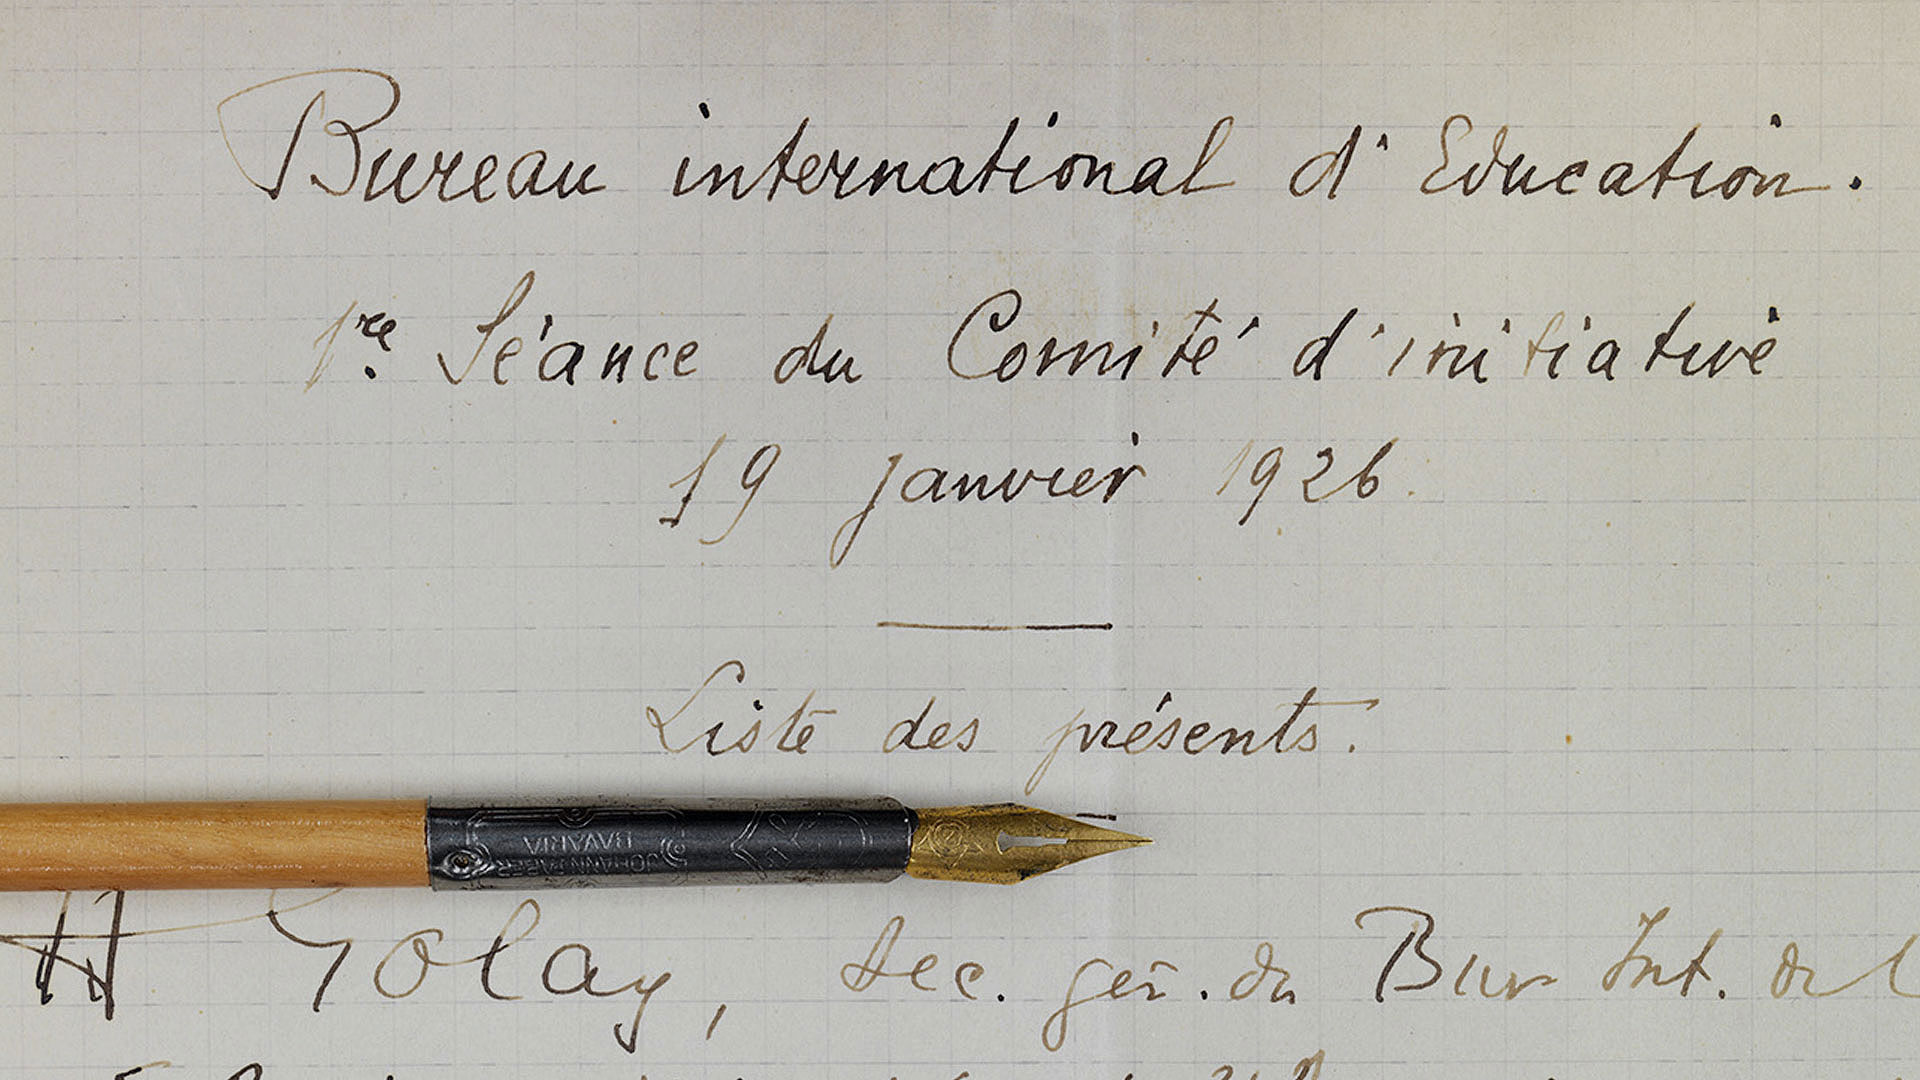 Bureau international d'Education.
1re. Séance du Comité d'initiative
19 janvier 1926.
Liste des présents.
JOHANN FABER
BAVARIA
H Golay, sec. gén. du Bur Int. de l